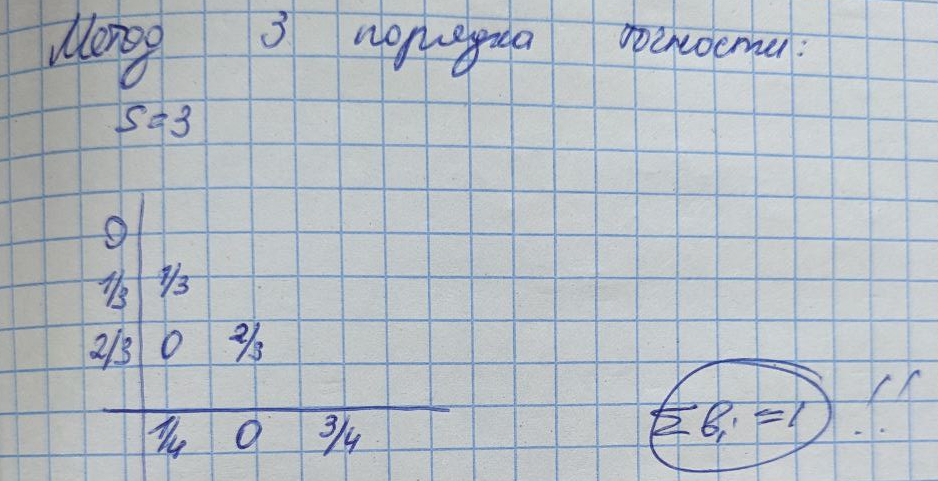 Метод 3 порядка точности:
S=3
0
1/3 1/3
2/3 0 2/3
1/4 0 3/4
Σ bᵢ = 1 !!